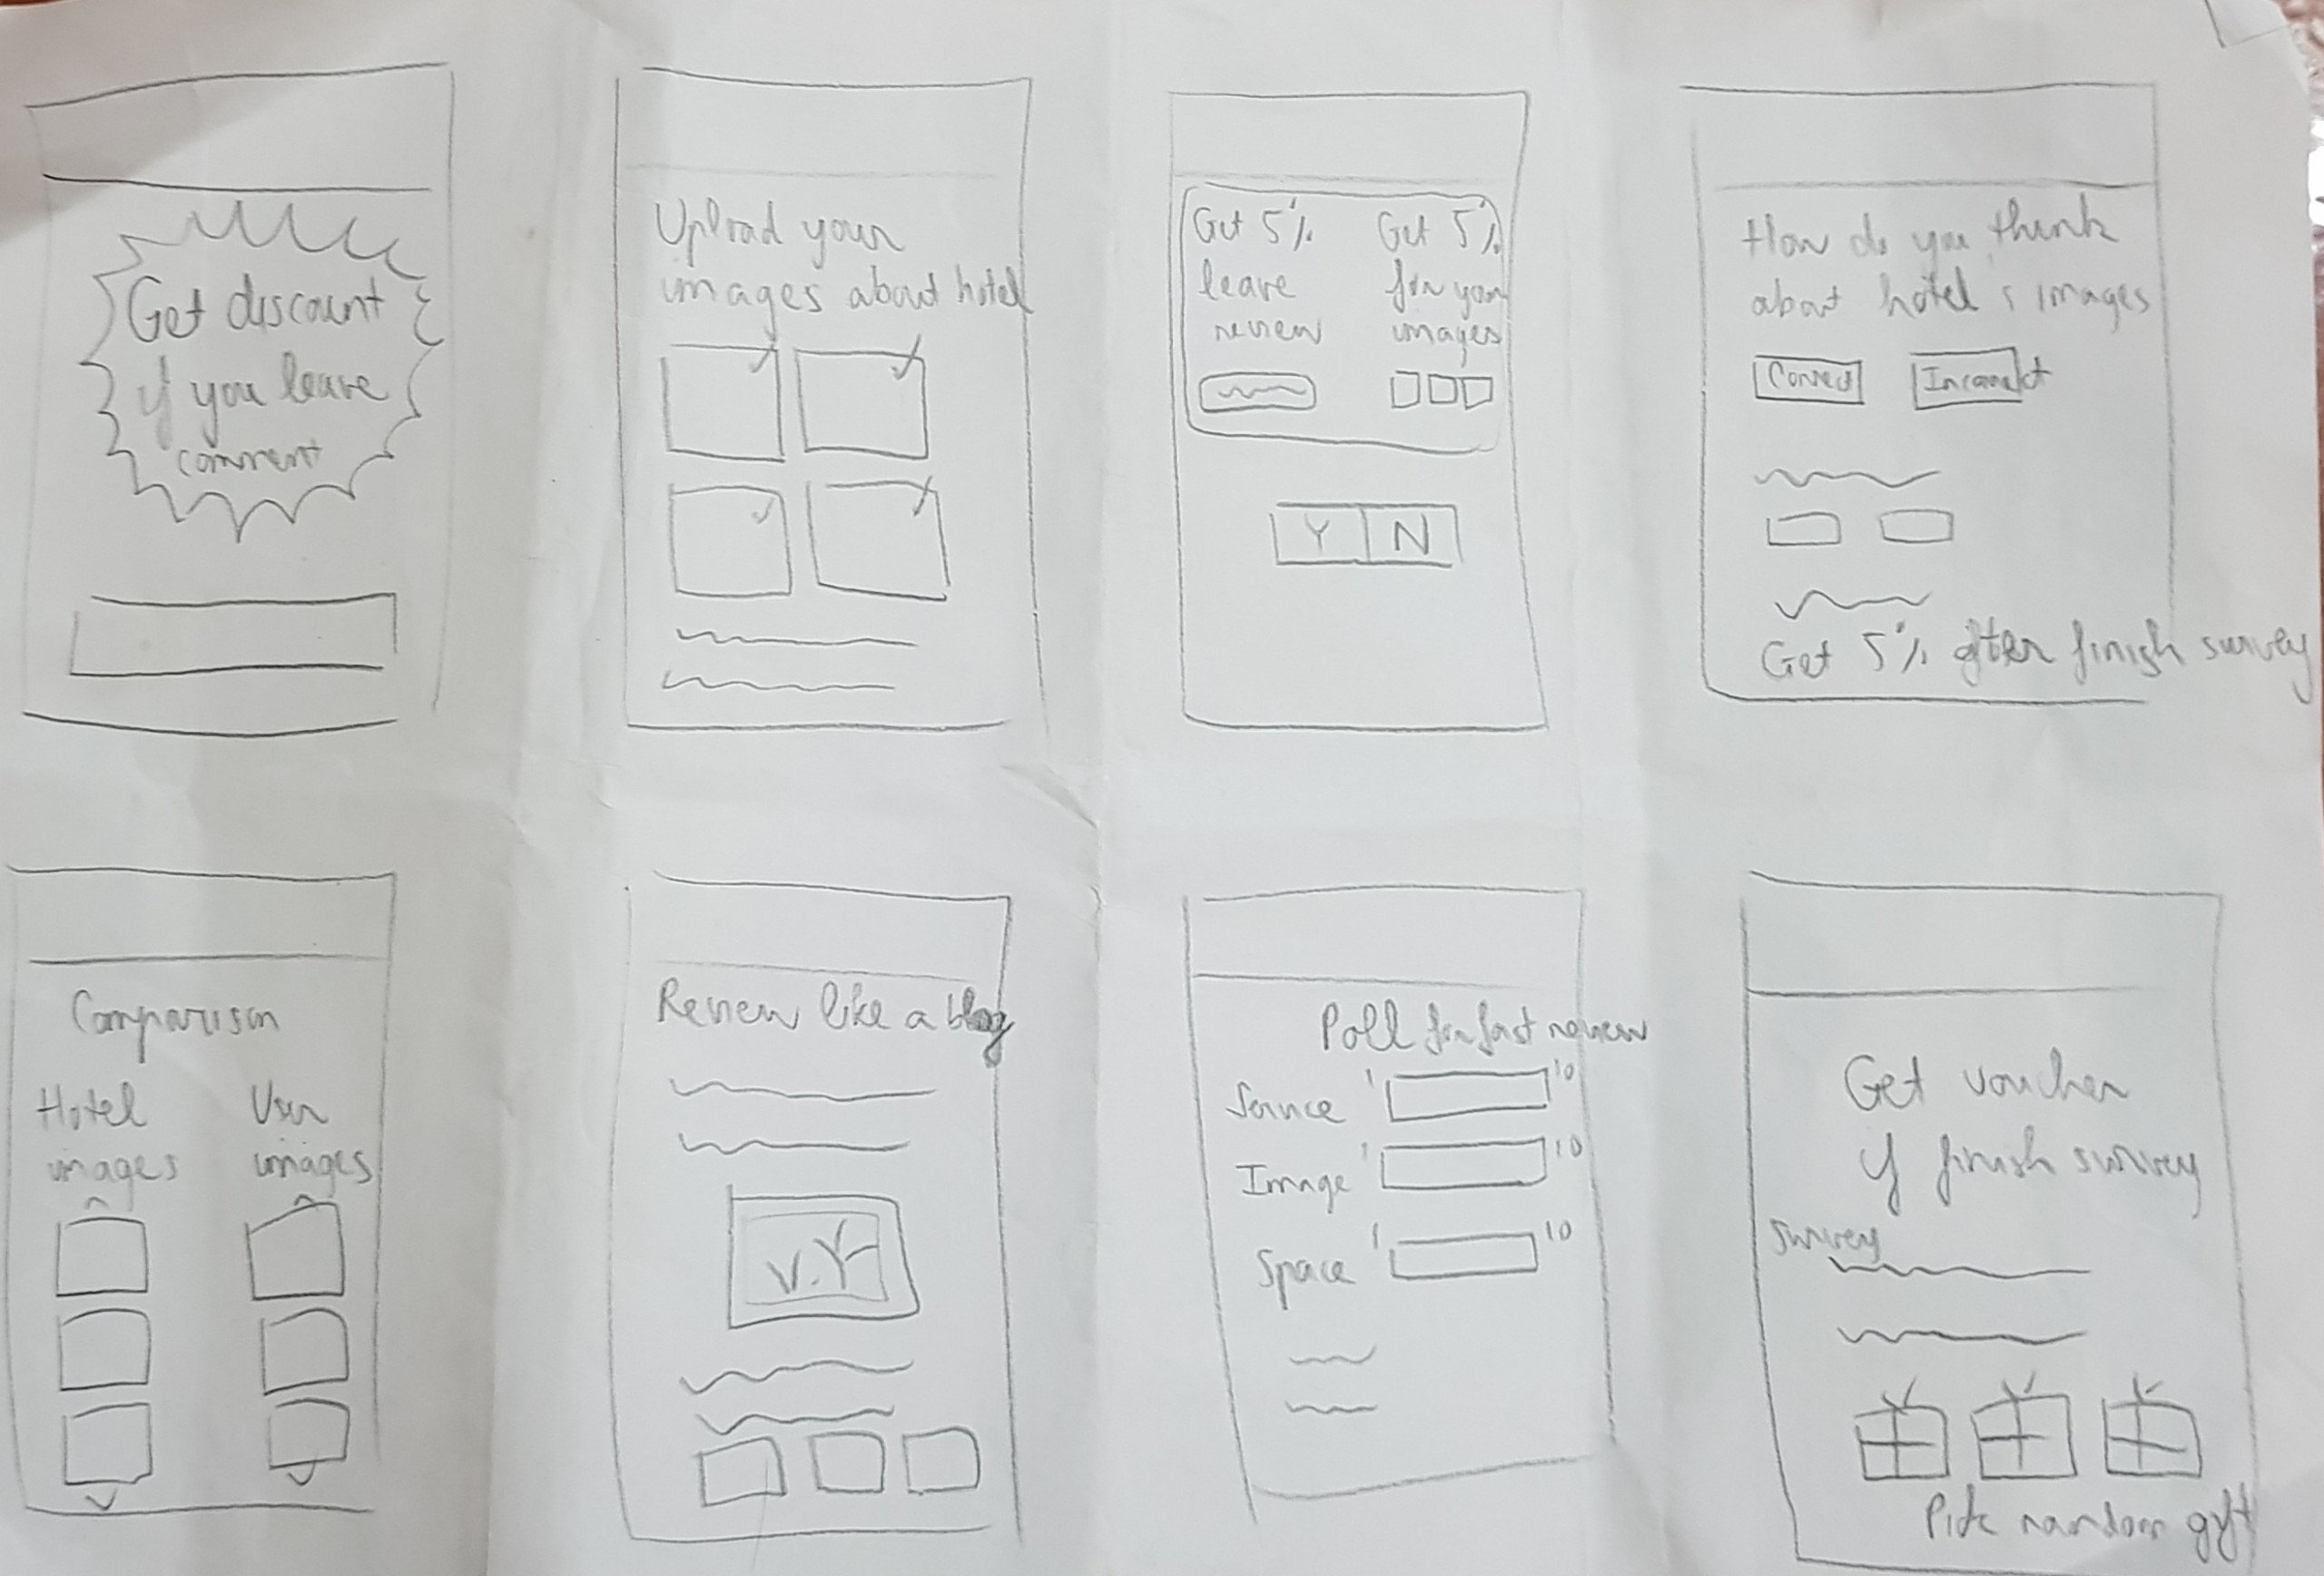 Get discount
if you leave
comment
Upload your
images about hotel
Get 5%
leave
review
Get 5%
for your
images
Y N
How do you think
about hotel's images
Correct Incorrect
Get 5% after finish survey
Comparison
Hotel
images
User
images
Review like a blog
Poll for fast review
Service 1 10
Image 1 10
Space 1 10
Get voucher
if finish survey
Survey
Pick random gift